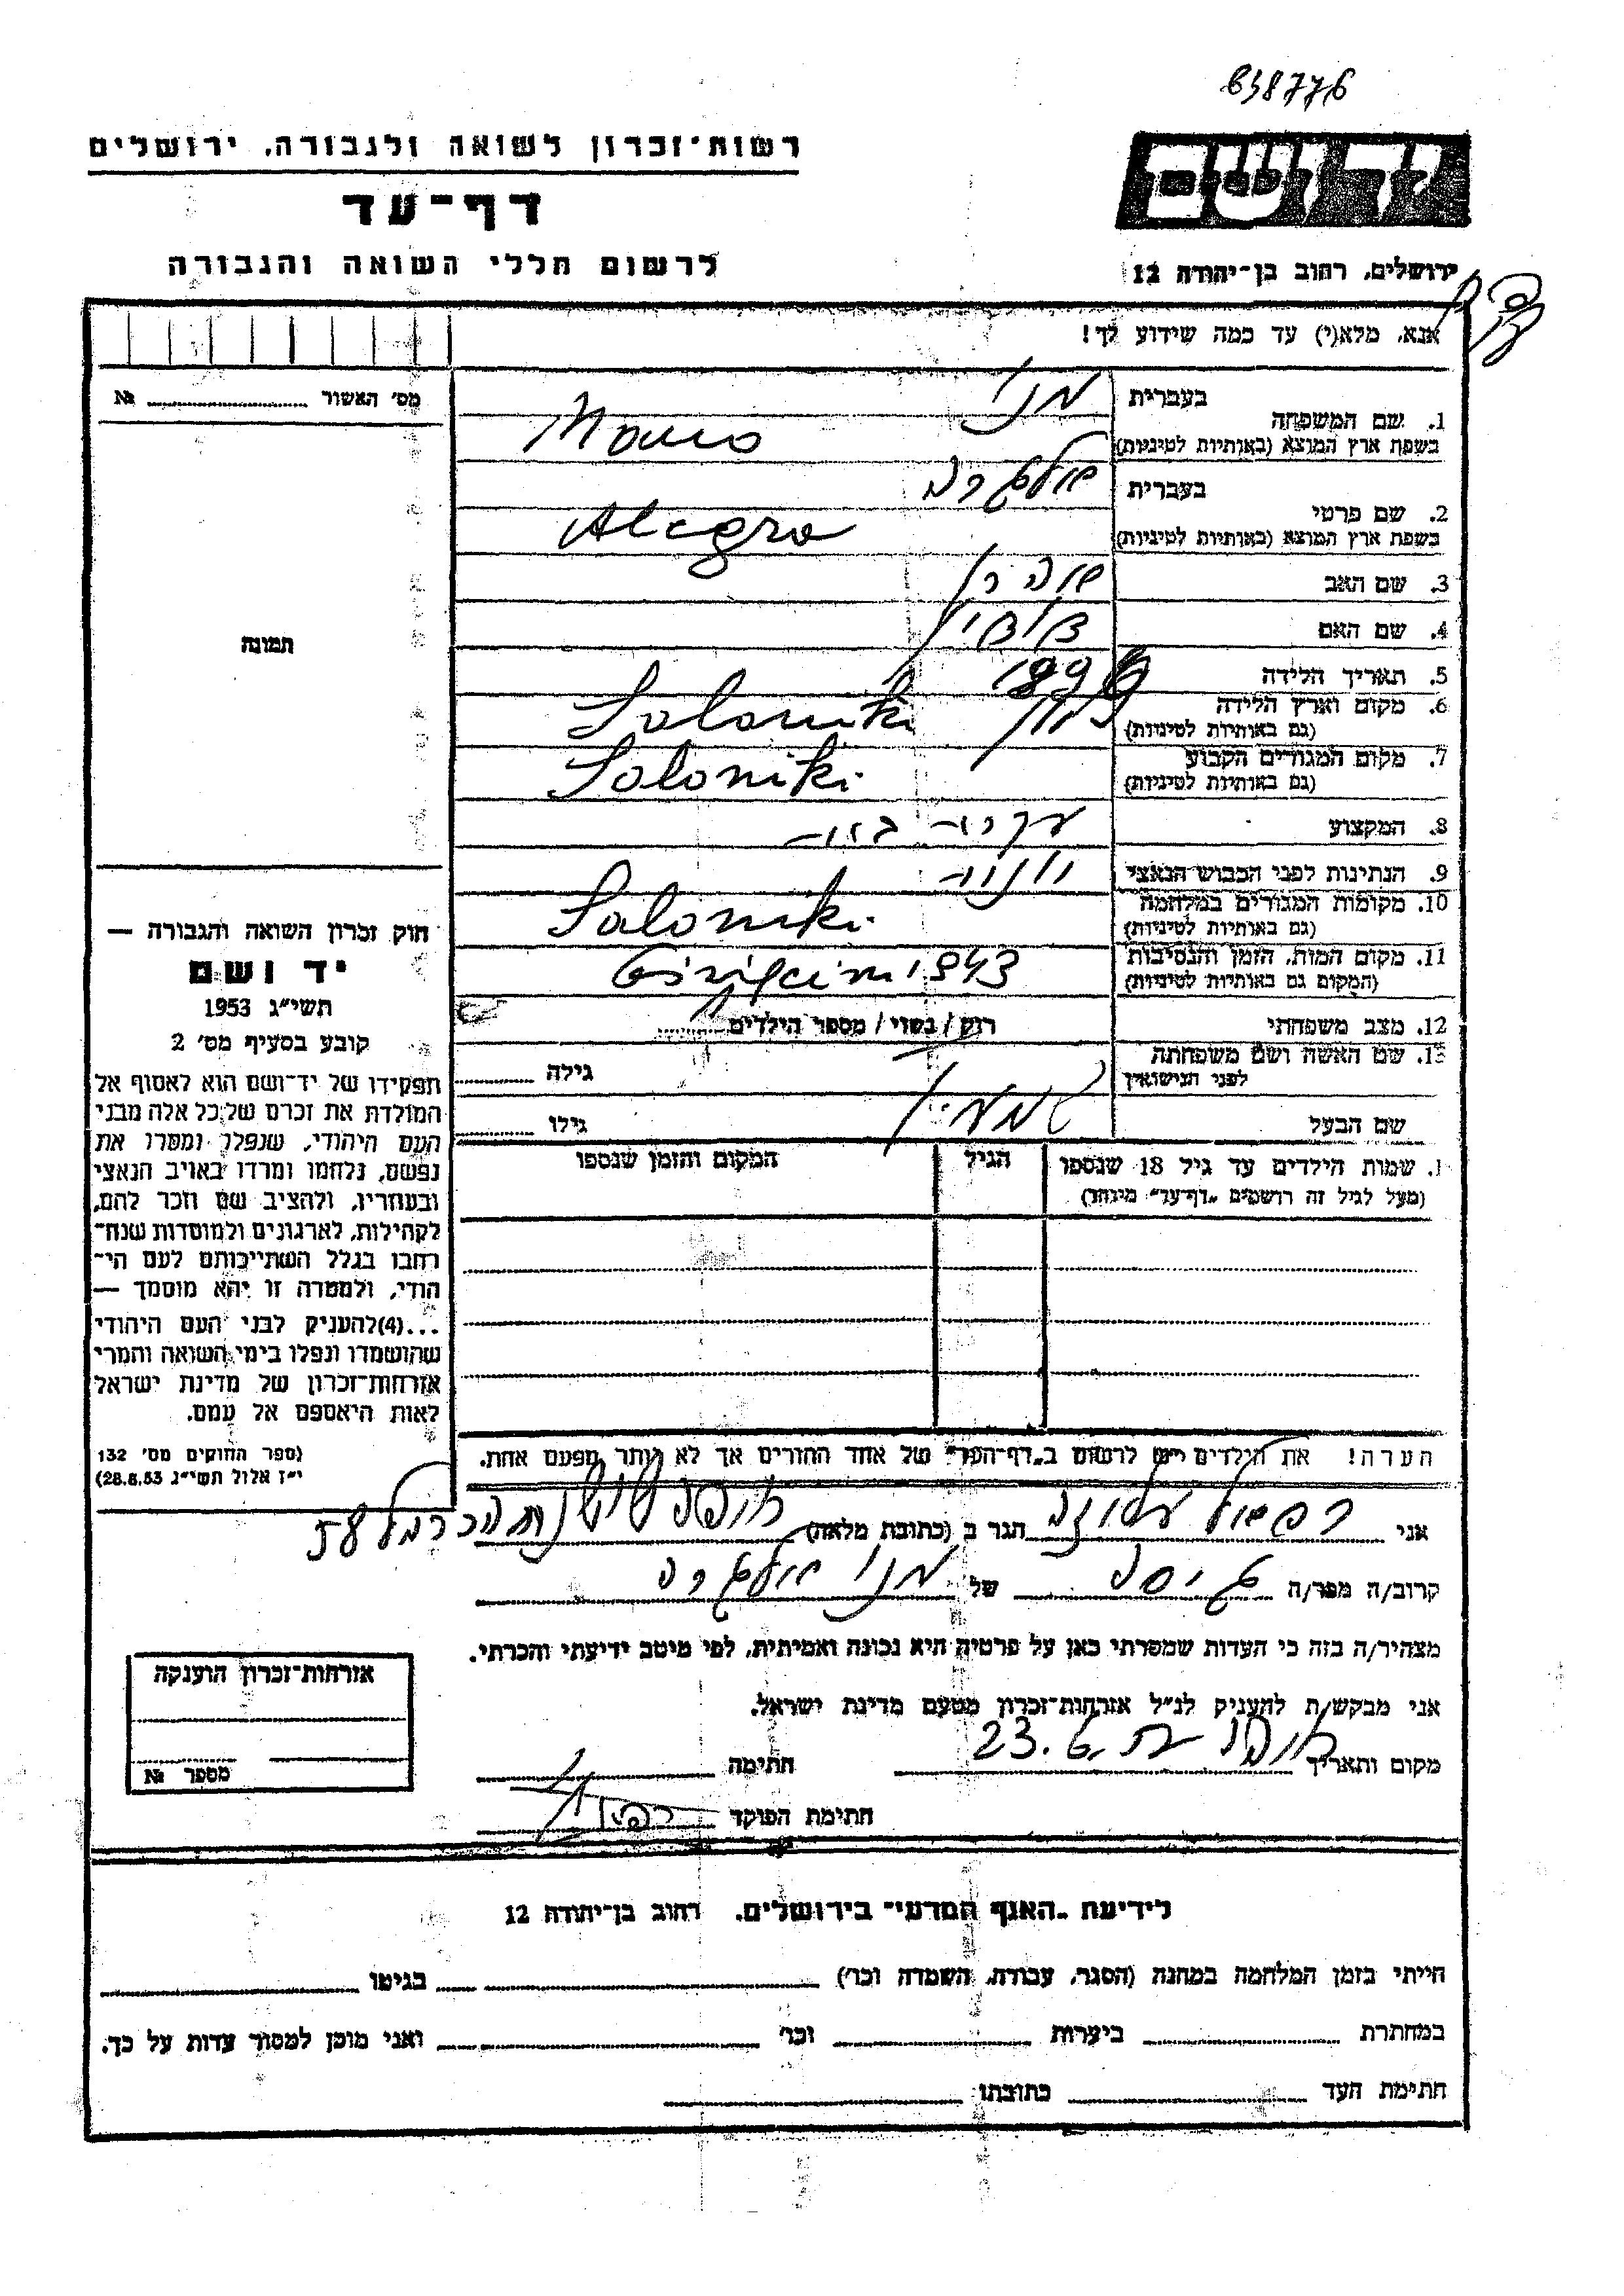 638776
רשות־זכרון לשואה ולגבורה, ירושלים
דף־עד
לרשום חללי השואה והגבורה
ידושם
ירושלים, רחוב בן־יהודה 12
אנא, מלא(י) עד כמה שידוע לך!
מס׳ האשור №
1. שם המשפחה
בעברית מנו
בשפת ארץ המוצא (באותיות לטיניות) Mano
2. שם פרטי
בעברית אלגרה
בשפת ארץ המוצא (באותיות לטיניות) Alegra
3. שם האב אהרן
4. שם האם
5. תאריך הלידה 1899
6. מקום וארץ הלידה יוון Saloniki
(גם באותיות לטיניות)
7. מקום המגורים הקבוע Saloniki
(גם באותיות לטיניות)
8. המקצוע עקרת־בית
9. הנתינות לפני הכבוש הנאצי יוונית
10. מקומות המגורים במלחמה Saloniki
(גם באותיות לטיניות)
11. מקום המות, הזמן והנסיבות 1943
(המקום גם באותיות לטיניות)
12. מצב משפחתי רווק / נשוי / מספר הילדים
13. שם האשה ושם משפחתה
לפני הנישואין גילה
שם הבעל גילו
תמונה
חוק זכרון השואה והגבורה —
יד ושם
תשי״ג 1953
קובע בסעיף מס׳ 2
תפקידו של יד־ושם הוא לאסוף אל
המולדת את זכרם של כל אלה מבני
העם היהודי, שנפלו ומסרו את
נפשם, נלחמו ומרדו באויב הנאצי
ובעוזריו, ולהציב שם וזכר להם,
לקהילות, לארגונים ולמוסדות שנח־
רחבו בגלל השתייכותם לעם הי־
הודי, ולמטרה זו יהא מוסמך —
...(4)להעניק לבני העם היהודי
שהושמדו ונפלו בימי השואה והמרי
אזרחות־זכרון של מדינת ישראל
לאות היאספם אל עמם.
(ספר החוקים מס׳ 132
י״ז אלול תשי״ג 28.8.53)
1. שמות הילדים עד גיל 18 שנספו הגיל המקום והזמן שנספו
(מעל לגיל זה רושמים „דף־עד״ מיוחד)
הערה! את הילדים יש לרשום ב„דף־העד״ של אחד ההורים אך לא יותר מפעם אחת.
אני רפאל הגר ב (כתובת מלאה) חיפה הכרמל 58
קרוב/ה מכר/ה גיסה של מנו אלגרה
מצהיר/ה בזה כי העדות שמסרתי כאן על פרטיה היא נכונה ואמיתית, לפי מיטב ידיעתי והכרתי.
אני מבקש/ת להעניק לנ״ל אזרחות־זכרון מטעם מדינת ישראל.
מקום ותאריך חיפה 23.6. חתימה
חתימת הפוקד
אזרחות־זכרון הוענקה
מספר №
לידיעת „האגף המדעי״ בירושלים, רחוב בן־יהודה 12
הייתי בזמן המלחמה במחנה (הסגר, עבודה, השמדה וכו׳) בגיטו
במחתרת ביערות וכו׳ ואני מוכן למסור עדות על כך.
חתימת העד כתובתו